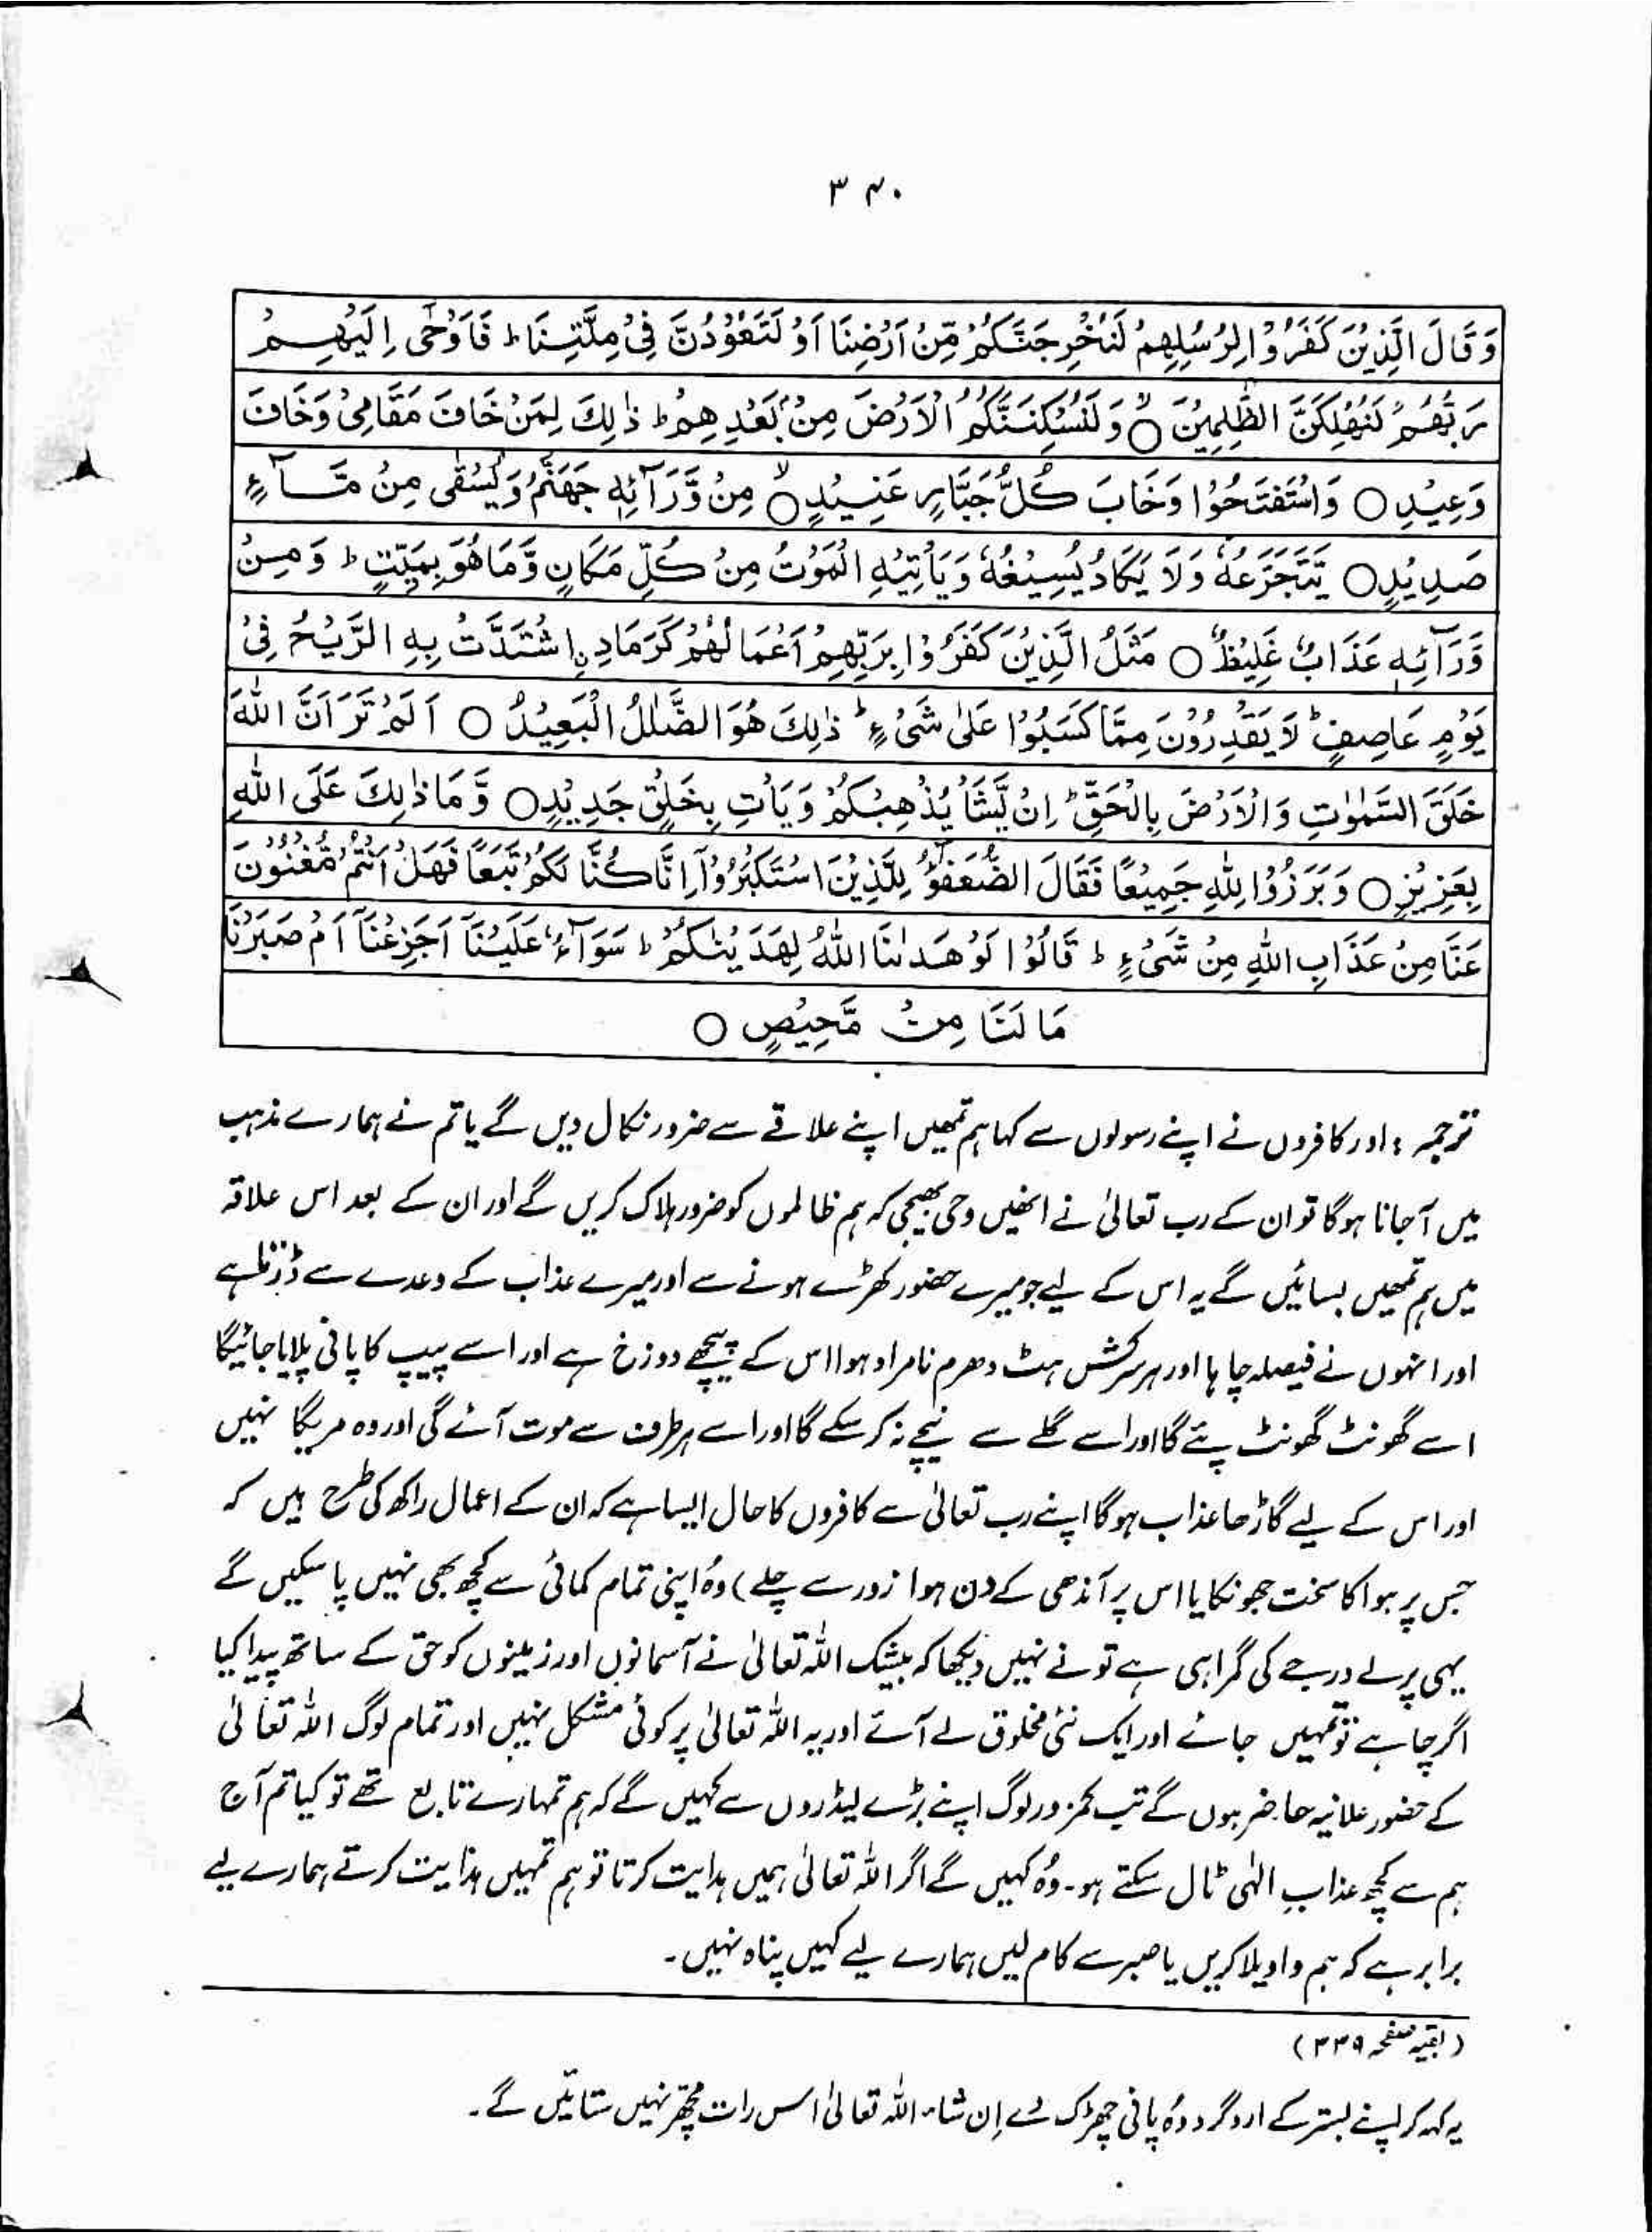 ۳۴۰
وَقَالَ الَّذِیْنَ كَفَرُوْا لِرُسُلِهِمْ لَنُخْرِجَنَّكُمْ مِّنْ اَرْضِنَا اَوْ لَتَعُوْدُنَّ فِیْ مِلَّتِنَا ؕ فَاَوْحٰی اِلَیْهِمْ
رَبُّهُمْ لَنُهْلِكَنَّ الظّٰلِمِیْنَ ۙ○ وَلَنُسْكِنَنَّكُمُ الْاَرْضَ مِنْۢ بَعْدِهِمْ ؕ ذٰلِكَ لِمَنْ خَافَ مَقَامِیْ وَخَافَ
وَعِیْدِ ○ وَاسْتَفْتَحُوْا وَخَابَ كُلُّ جَبَّارٍ عَنِیْدٍ ۙ○ مِنْ وَّرَآئِهٖ جَهَنَّمُ وَیُسْقٰی مِنْ مَّآءٍ
صَدِیْدٍ ○ یَّتَجَرَّعُهٗ وَلَا یَكَادُ یُسِیْغُهٗ وَیَاْتِیْهِ الْمَوْتُ مِنْ كُلِّ مَكَانٍ وَّمَا هُوَ بِمَیِّتٍ ؕ وَمِنْ
وَّرَآئِهٖ عَذَابٌ غَلِیْظٌ ○ مَثَلُ الَّذِیْنَ كَفَرُوْا بِرَبِّهِمْ اَعْمَالُهُمْ كَرَمَادِ ۣاشْتَدَّتْ بِهِ الرِّیْحُ فِیْ
یَوْمٍ عَاصِفٍ ؕ لَا یَقْدِرُوْنَ مِمَّا كَسَبُوْا عَلٰی شَیْءٍ ؕ ذٰلِكَ هُوَ الضَّلٰلُ الْبَعِیْدُ ○ اَلَمْ تَرَ اَنَّ اللّٰهَ
خَلَقَ السَّمٰوٰتِ وَالْاَرْضَ بِالْحَقِّ ؕ اِنْ یَّشَاْ یُذْهِبْكُمْ وَیَاْتِ بِخَلْقٍ جَدِیْدٍ ○ وَّمَا ذٰلِكَ عَلَی اللّٰهِ
بِعَزِیْزٍ ○ وَبَرَزُوْا لِلّٰهِ جَمِیْعًا فَقَالَ الضُّعَفٰٓؤُا لِلَّذِیْنَ اسْتَكْبَرُوْٓا اِنَّا كُنَّا لَكُمْ تَبَعًا فَهَلْ اَنْتُمْ مُّغْنُوْنَ
عَنَّا مِنْ عَذَابِ اللّٰهِ مِنْ شَیْءٍ ؕ قَالُوْا لَوْ هَدٰىنَا اللّٰهُ لَهَدَیْنٰكُمْ ؕ سَوَآءٌ عَلَیْنَآ اَجَزِعْنَآ اَمْ صَبَرْنَا
مَا لَنَا مِنْ مَّحِیْصٍ ○
ترجمہ : اور کافروں نے اپنے رسولوں سے کہا ہم تمھیں اپنے علاقے سے ضرور نکال دیں گے یا تم نے ہمارے مذہب
میں آجانا ہوگا تو ان کے رب تعالیٰ نے انھیں وحی بھیجی کہ ہم ظالموں کو ضرور ہلاک کریں گے اور ان کے بعد اس علاقہ
میں ہم تمھیں بسائیں گے یہ اس کے لیے جو میرے حضور کھڑے ہونے سے اور میرے عذاب کے وعدے سے ڈرتا ہے
اور انہوں نے فیصلہ چاہا اور ہر سرکش ہٹ دھرم نامراد ہوا اس کے پیچھے دوزخ ہے اور اسے پیپ کا پانی پلایا جائیگا
اسے گھونٹ گھونٹ پئے گا اور اسے گلے سے نیچے نہ کر سکے گا اور اسے ہر طرف سے موت آئے گی اور وہ مریگا نہیں
اور اس کے لیے گاڑھا عذاب ہوگا اپنے رب تعالیٰ سے کافروں کا حال ایسا ہے کہ ان کے اعمال راکھ کی طرح ہیں کہ
جس پر ہوا کا سخت جھونکا یا اس پر آندھی کے دن ہوا زور سے چلے) وہ اپنی تمام کمائی سے کچھ بھی نہیں پا سکیں گے
یہی پرلے درجے کی گمراہی ہے تو نے نہیں دیکھا کہ بیشک اللہ تعالیٰ نے آسمانوں اور زمینوں کو حق کے ساتھ پیدا کیا
اگر چاہے تو تمہیں جائے اور ایک نئی مخلوق لے آئے اور یہ اللہ تعالیٰ پر کوئی مشکل نہیں اور تمام لوگ اللہ تعالیٰ
کے حضور علانیہ حاضر ہوں گے تب کمزور لوگ اپنے بڑے لیڈروں سے کہیں گے کہ ہم تمہارے تابع تھے تو کیا تم آج
ہم سے کچھ عذابِ الٰہی ٹال سکتے ہو۔ وہ کہیں گے اگر اللہ تعالیٰ ہمیں ہدایت کرتا تو ہم تمہیں ہدایت کرتے ہمارے لیے
برابر ہے کہ ہم واویلا کریں یا صبر سے کام لیں ہمارے لیے کہیں پناہ نہیں۔
(بقیہ صفحہ ۳۳۹)
یہ کہہ کر اپنے بستر کے اردگرد وہ پانی چھڑک دے اِن شاء اللہ تعالیٰ اس رات مچھر نہیں ستائیں گے۔